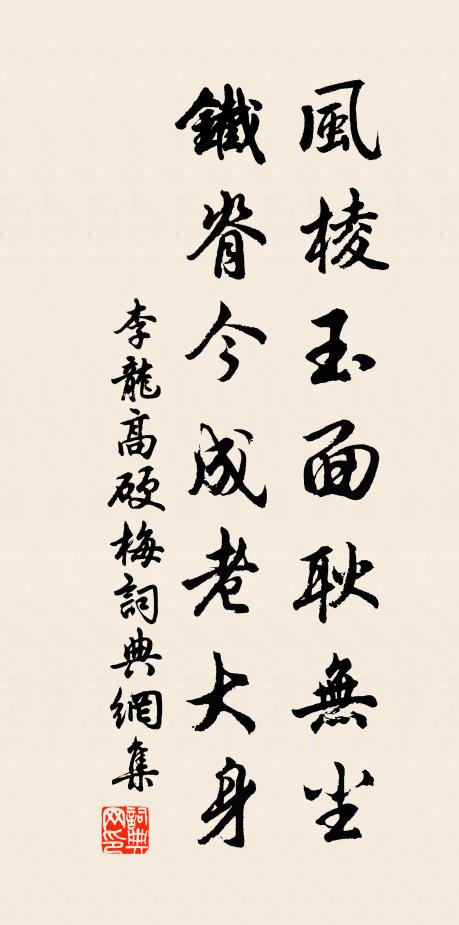 風棱玉面耿無尘
鐵脊今成老大身
李龍高硬梅詞典網集
詞典网印